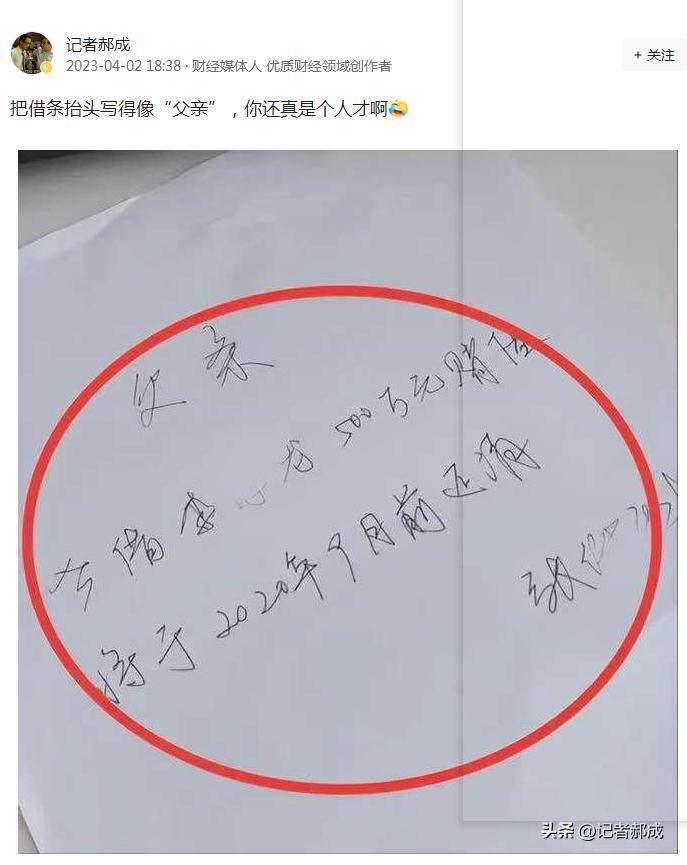 记者郝成
2023-04-02 18:38 · 财经媒体人 优质财经领域创作者
+ 关注
把借条抬头写得像“父亲”，你还真是个人才啊
父条
借李 龙 500万元赌
将于2020年9月前还清
张
头条 @记者郝成